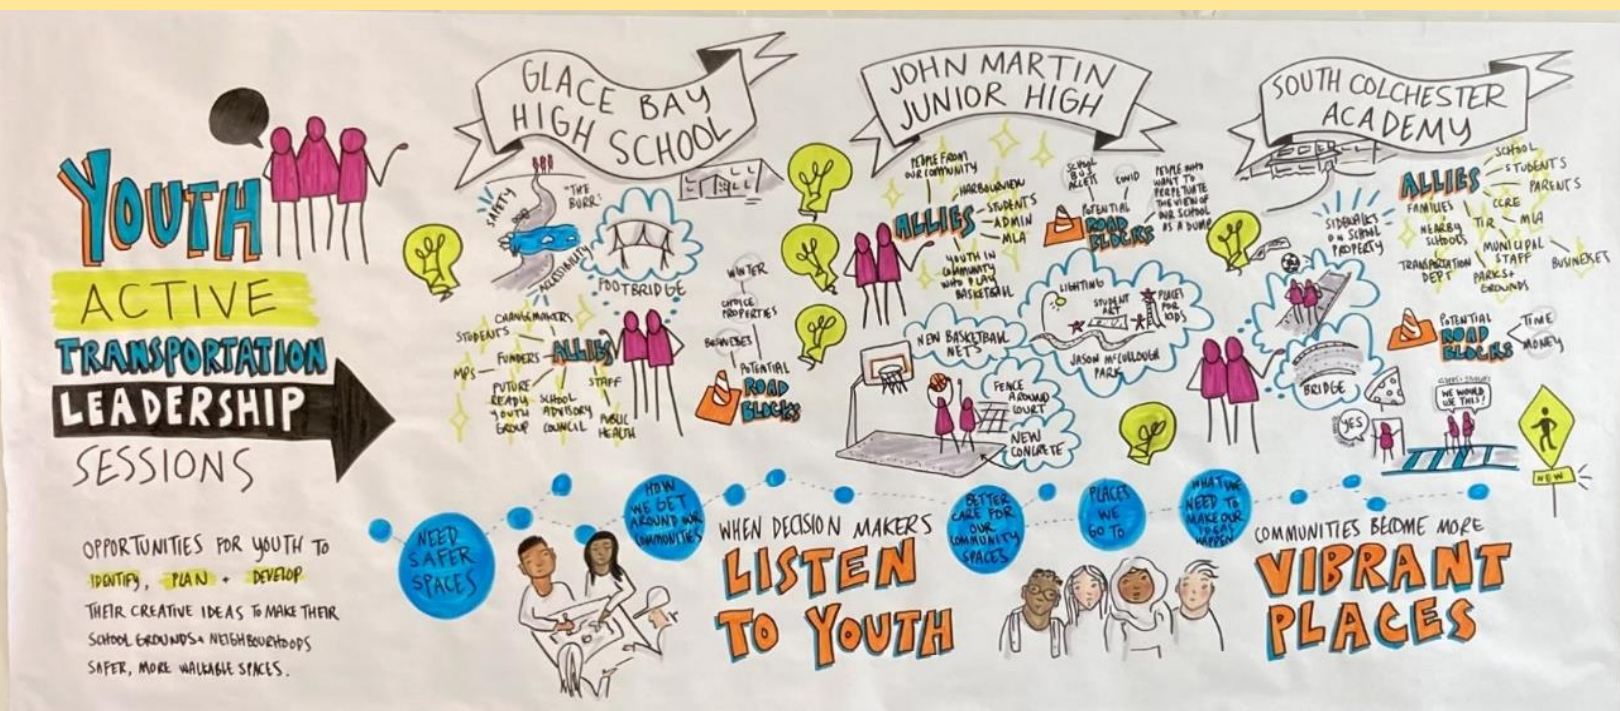 YOUTH
ACTIVE
TRANSPORTATION
LEADERSHIP
SESSIONS
OPPORTUNITIES FOR YOUTH TO
IDENTIFY, PLAN + DEVELOP
THEIR CREATIVE IDEAS TO MAKE THEIR
SCHOOL GROUNDS + NEIGHBOURHOODS
SAFER, MORE WALKABLE SPACES.
GLACE BAY
HIGH SCHOOL
SAFETY
"THE
BURR"
ACCESSIBILITY
FOOTBRIDGE
CHANGEMAKERS
STUDENTS
FUNDERS
ALLIES
MPS
FUTURE
READY
YOUTH
GROUP
SCHOOL
ADVISORY
COUNCIL
STAFF
PUBLIC
HEALTH
WINTER
CHOICE
PROPERTIES
BUSINESSES
POTENTIAL
ROAD
BLOCKS
JOHN MARTIN
JUNIOR HIGH
PEOPLE FROM
OUR COMMUNITY
HARBOURVIEW
STUDENTS
ALLIES
ADMIN
MLA
YOUTH IN
COMMUNITY
WHO PLAY
BASKETBALL
SCHOOL
BUS
ACCESS
COVID
PEOPLE WHO
WANT TO
PERPETUATE
THE VIEW OF
OUR SCHOOL
AS A DUMP
POTENTIAL
ROAD
BLOCKS
LIGHTING
STUDENT
ART
PLACES
FOR
KIDS
JASON McCULLOUGH
PARK
NEW BASKETBALL
NETS
FENCE
AROUND
COURT
NEW
CONCRETE
SOUTH COLCHESTER
ACADEMY
SIDEWALKS
ON SCHOOL
PROPERTY
SCHOOL
STUDENTS
PARENTS
ALLIES
FAMILIES
CCRE
TIR
MLA
NEARBY
SCHOOLS
MUNICIPAL
STAFF
BUSINESSES
TRANSPORTATION
DEPT
PARKS +
GROUNDS
POTENTIAL
ROAD
BLOCKS
TIME
MONEY
BRIDGE
YES
WE WOULD
USE THIS!
NEW
NEED
SAFER
SPACES
HOW
WE GET
AROUND OUR
COMMUNITIES
WHEN DECISION MAKERS
LISTEN
TO YOUTH
BETTER
CARE FOR
OUR
COMMUNITY
SPACES
PLACES
WE
GO TO
WHAT WE
NEED TO
MAKE OUR
IDEAS
HAPPEN
COMMUNITIES BECOME MORE
VIBRANT
PLACES